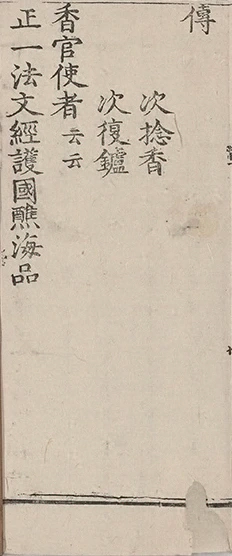 傳
次捻香
次復鑪
香官使者云云
正一法文經護國醮海品